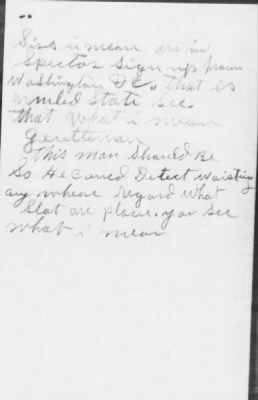 Sirs i mean an in
Spector Sign up from
Washington D.C. that is
united State see.
that what i mean
Gentleman
this man Should Be
So He Caned Detect Waisting
any where regard what
Stat are place. you see
what i mean